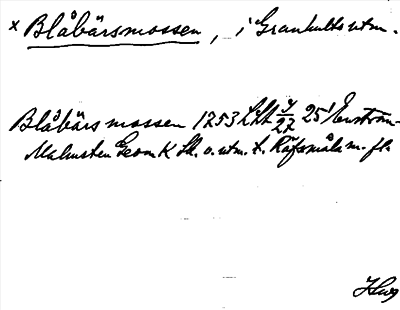 x Blåbärsmossen, i Granhults utm.
Blåbärsmossen 1253 Lilt 9/22 25 Enström-
Malmsten Geom K Sk. o. utm. t. Råfsmåla m. fl.
Hwg